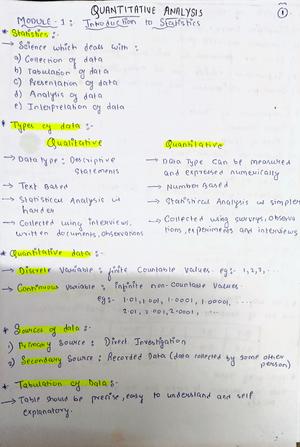 QUANTITATIVE ANALYSIS
1
MODULE - 1 : Introduction to Statistics
* Statistics :-
→ Science which deals with :
a) Collection of data
b) Tabulation of data
c) Presentation of data
d) Analysis of data
e) Interpretation of data
* Types of data :-
Qualitative
→ Data type : Descriptive statements
→ Text Based
→ Statistical Analysis is harder
→ Collected using interviews, written documents, observations
Quantitative
→ Data type can be measured and expressed numerically
→ Number Based
→ Statistical Analysis is simpler
→ Collected using surveys, observations, experiments and interviews
* Quantitative data :-
→ Discrete variable : finite countable values. eg:- 1,2,3,...
→ Continuous variable : infinite non-countable values.
eg:- 1.01, 1.001, 1.0001, 1.00001, ....
2.01, 2.001, 2.0001, ....
* Sources of data :-
1) Primary Source : Direct Investigation
2) Secondary Source : Recorded Data (data collected by some other person)
* Tabulation of Data :-
→ Table should be precise, easy to understand and self
explanatory.